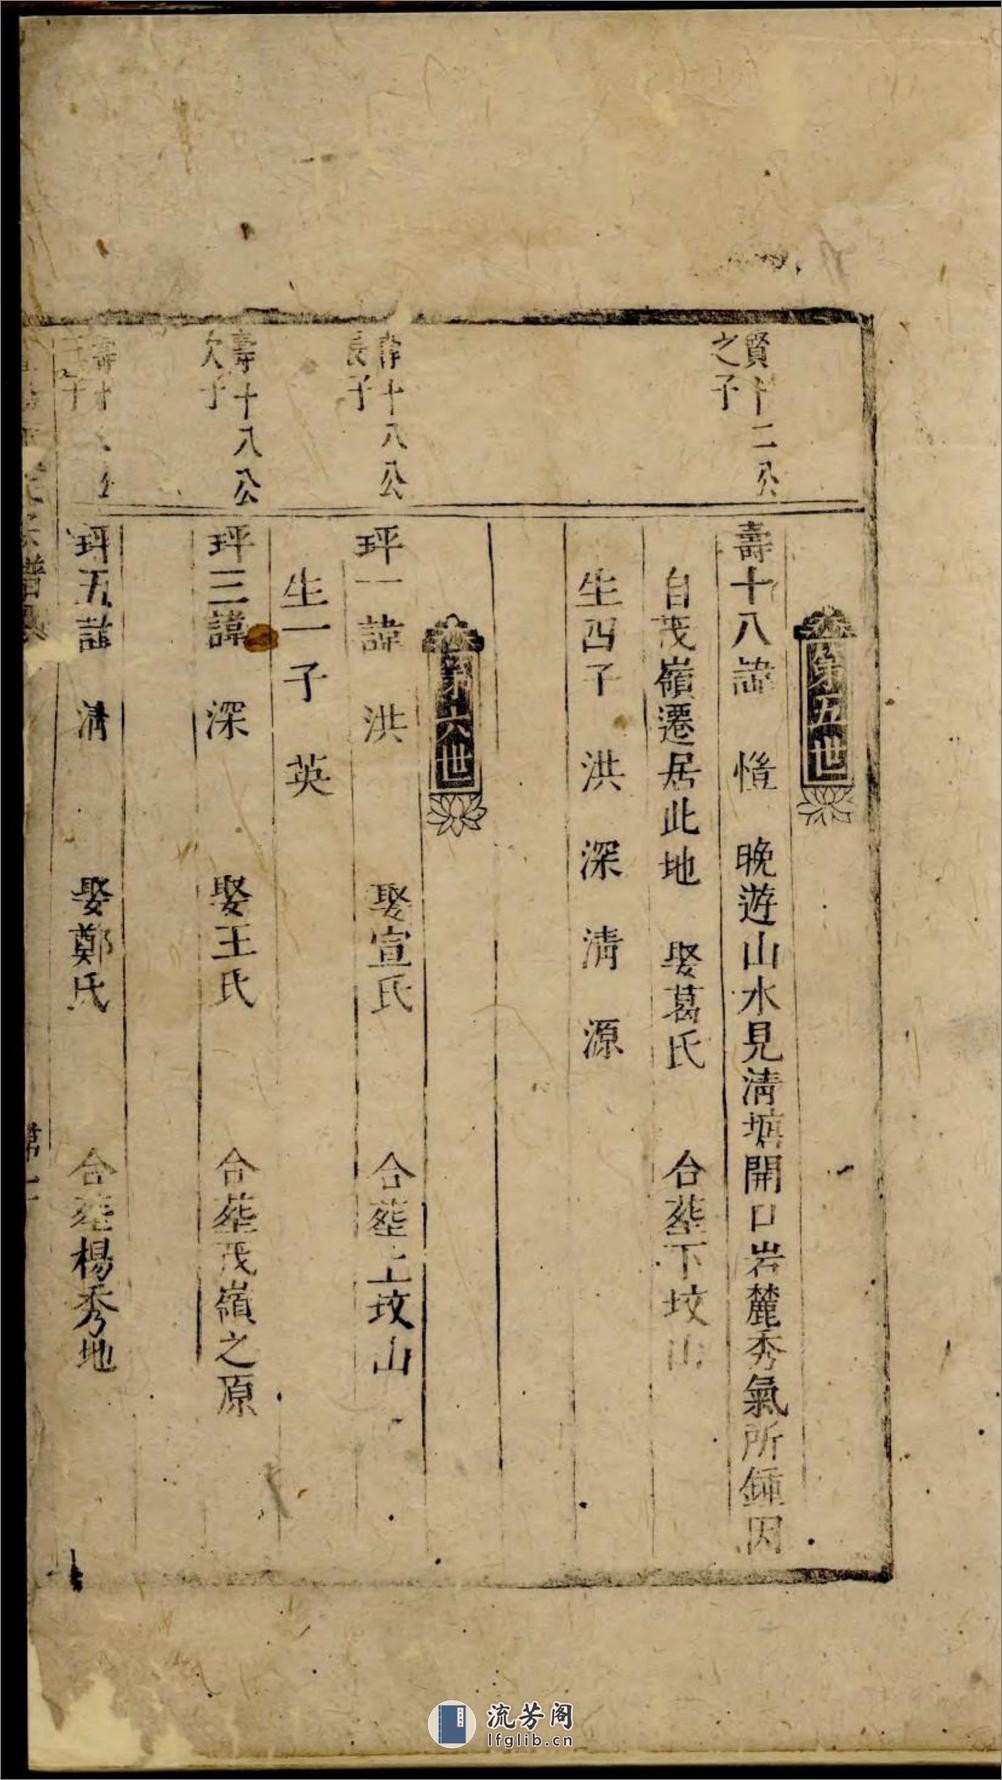 第五世
賢十二公
之子
壽十八諱 愷 晚遊山水見清塘開口岩麓秀氣所鍾因
自茂嶺遷居此地 娶葛氏 合塟下坟山
生四子 洪 深 清 源
第六世
壽十八公
長子
坪一諱 洪 娶宣氏 合塟上坟山
生一子 英
壽十八公
次子
坪三諱 深 娶王氏 合塟茂嶺之原
壽十八公
三子
坪五諱 清 娶鄭氏 合塟楊秀地
流芳阁
lfglib.cn